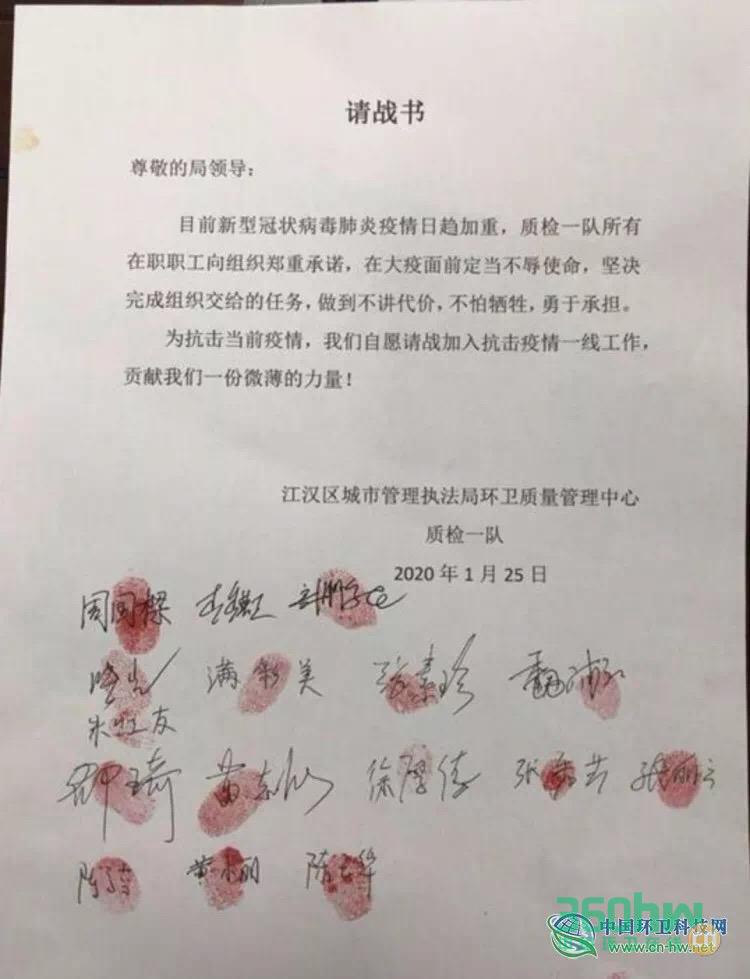 请战书
尊敬的局领导：
目前新型冠状病毒肺炎疫情日趋加重，质检一队所有
在职职工向组织郑重承诺，在大疫面前定当不辱使命，坚决
完成组织交给的任务，做到不讲代价，不怕牺牲，勇于承担。
为抗击当前疫情，我们自愿请战加入抗击疫情一线工作，
贡献我们一份微薄的力量！
江汉区城市管理执法局环卫质量管理中心
质检一队
2020年1月25日
周国樑
满彩美 张素珍
徐厚德 张丽云
黄小丽
360hw
中国环卫科技网
www.cn-hw.net